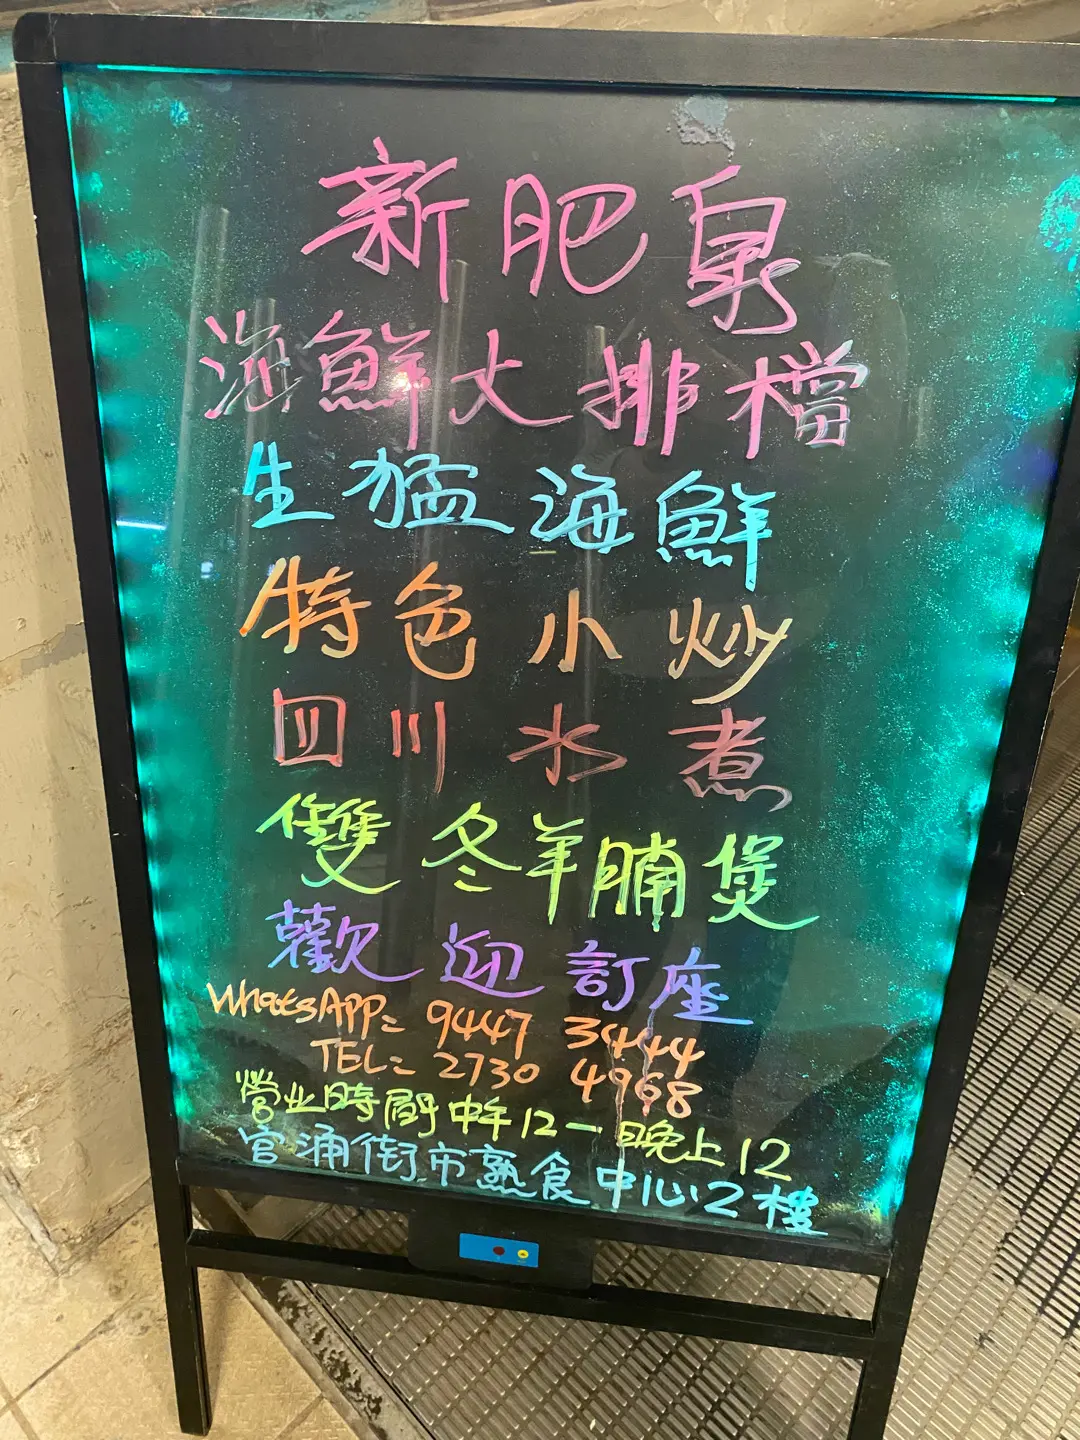 新肥泉
海鮮大排檔
生猛海鮮
特色小炒
四川水煮
雙冬羊腩煲
歡迎訂座
WhatsAPP= 9447 3444
TEL= 2730 4968
營业時間中午12一晚上12
官涌街市熟食中心2樓